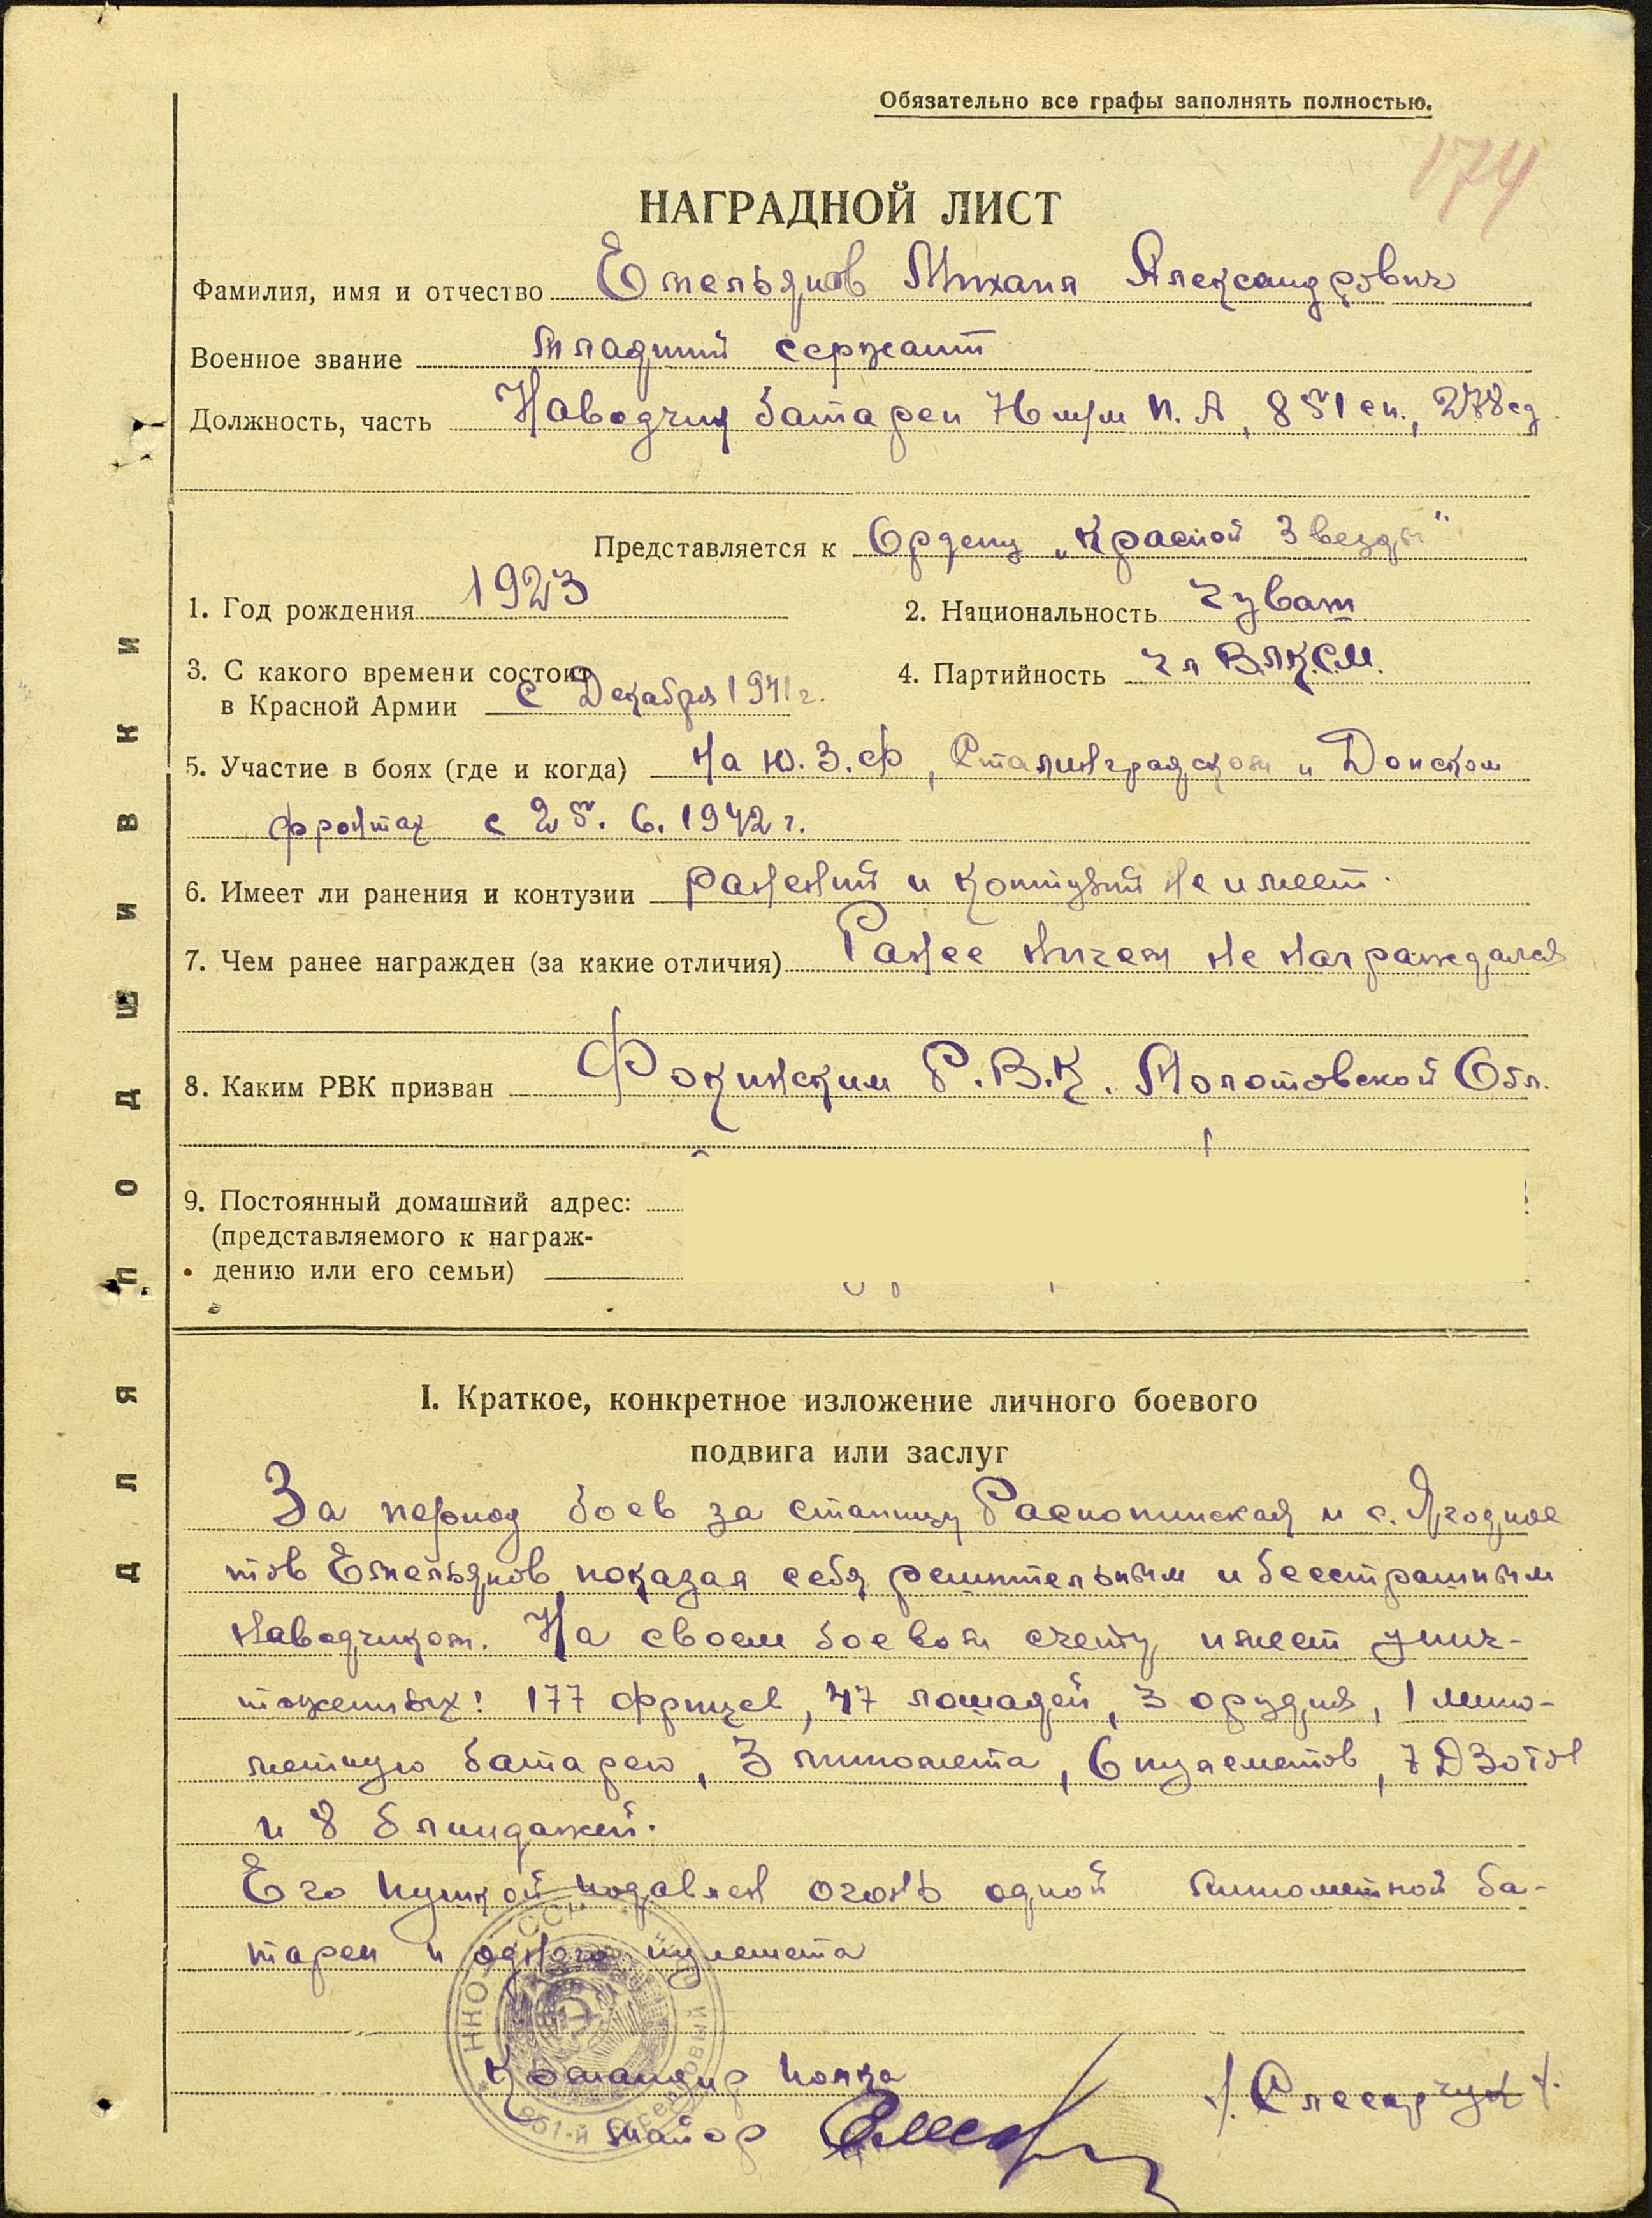 Обязательно все графы заполнять полностью.
174
НАГРАДНОЙ ЛИСТ
Фамилия, имя и отчество Емельянов Михаил Александрович
Военное звание младший сержант
Должность, часть Наводчик батареи 76 м/м П.А, 851 сп., 278 сд
Представляется к Ордену „Красной Звезды"
1. Год рождения 1923
2. Национальность чуваш
3. С какого времени состоит
в Красной Армии с Декабря 1941 г.
4. Партийность чл ВЛКСМ.
5. Участие в боях (где и когда) На Ю.З.Ф, Сталинградском и Донском
фронтах с 25. 6. 1942 г.
6. Имеет ли ранения и контузии ранений и контузий не имеет.
7. Чем ранее награжден (за какие отличия) Ранее ничем не награждался
8. Каким РВК призван Фокинским Р.В.К. Молотовской Обл.
9. Постоянный домашний адрес:
(представляемого к награж-
дению или его семьи)
ДЛЯ ПОДШИВКИ
I. Краткое, конкретное изложение личного боевого
подвига или заслуг
За период боев за станицу Распопинская и с. Ягодное
тов Емельянов показал себя решительным и бесстрашным
наводчиком. На своем боевом счету имеет унич-
тоженных: 177 фрицев, 47 лошадей, 3 орудия, 1 мино-
метную батарею, 3 миномета, 6 пулеметов, 7 ДЗОТов
и 8 блиндажей.
Его пушкой подавлен огонь одной минометной ба-
тареи и одного пулемета
Командир полка
майор
/. Слесарчук /.